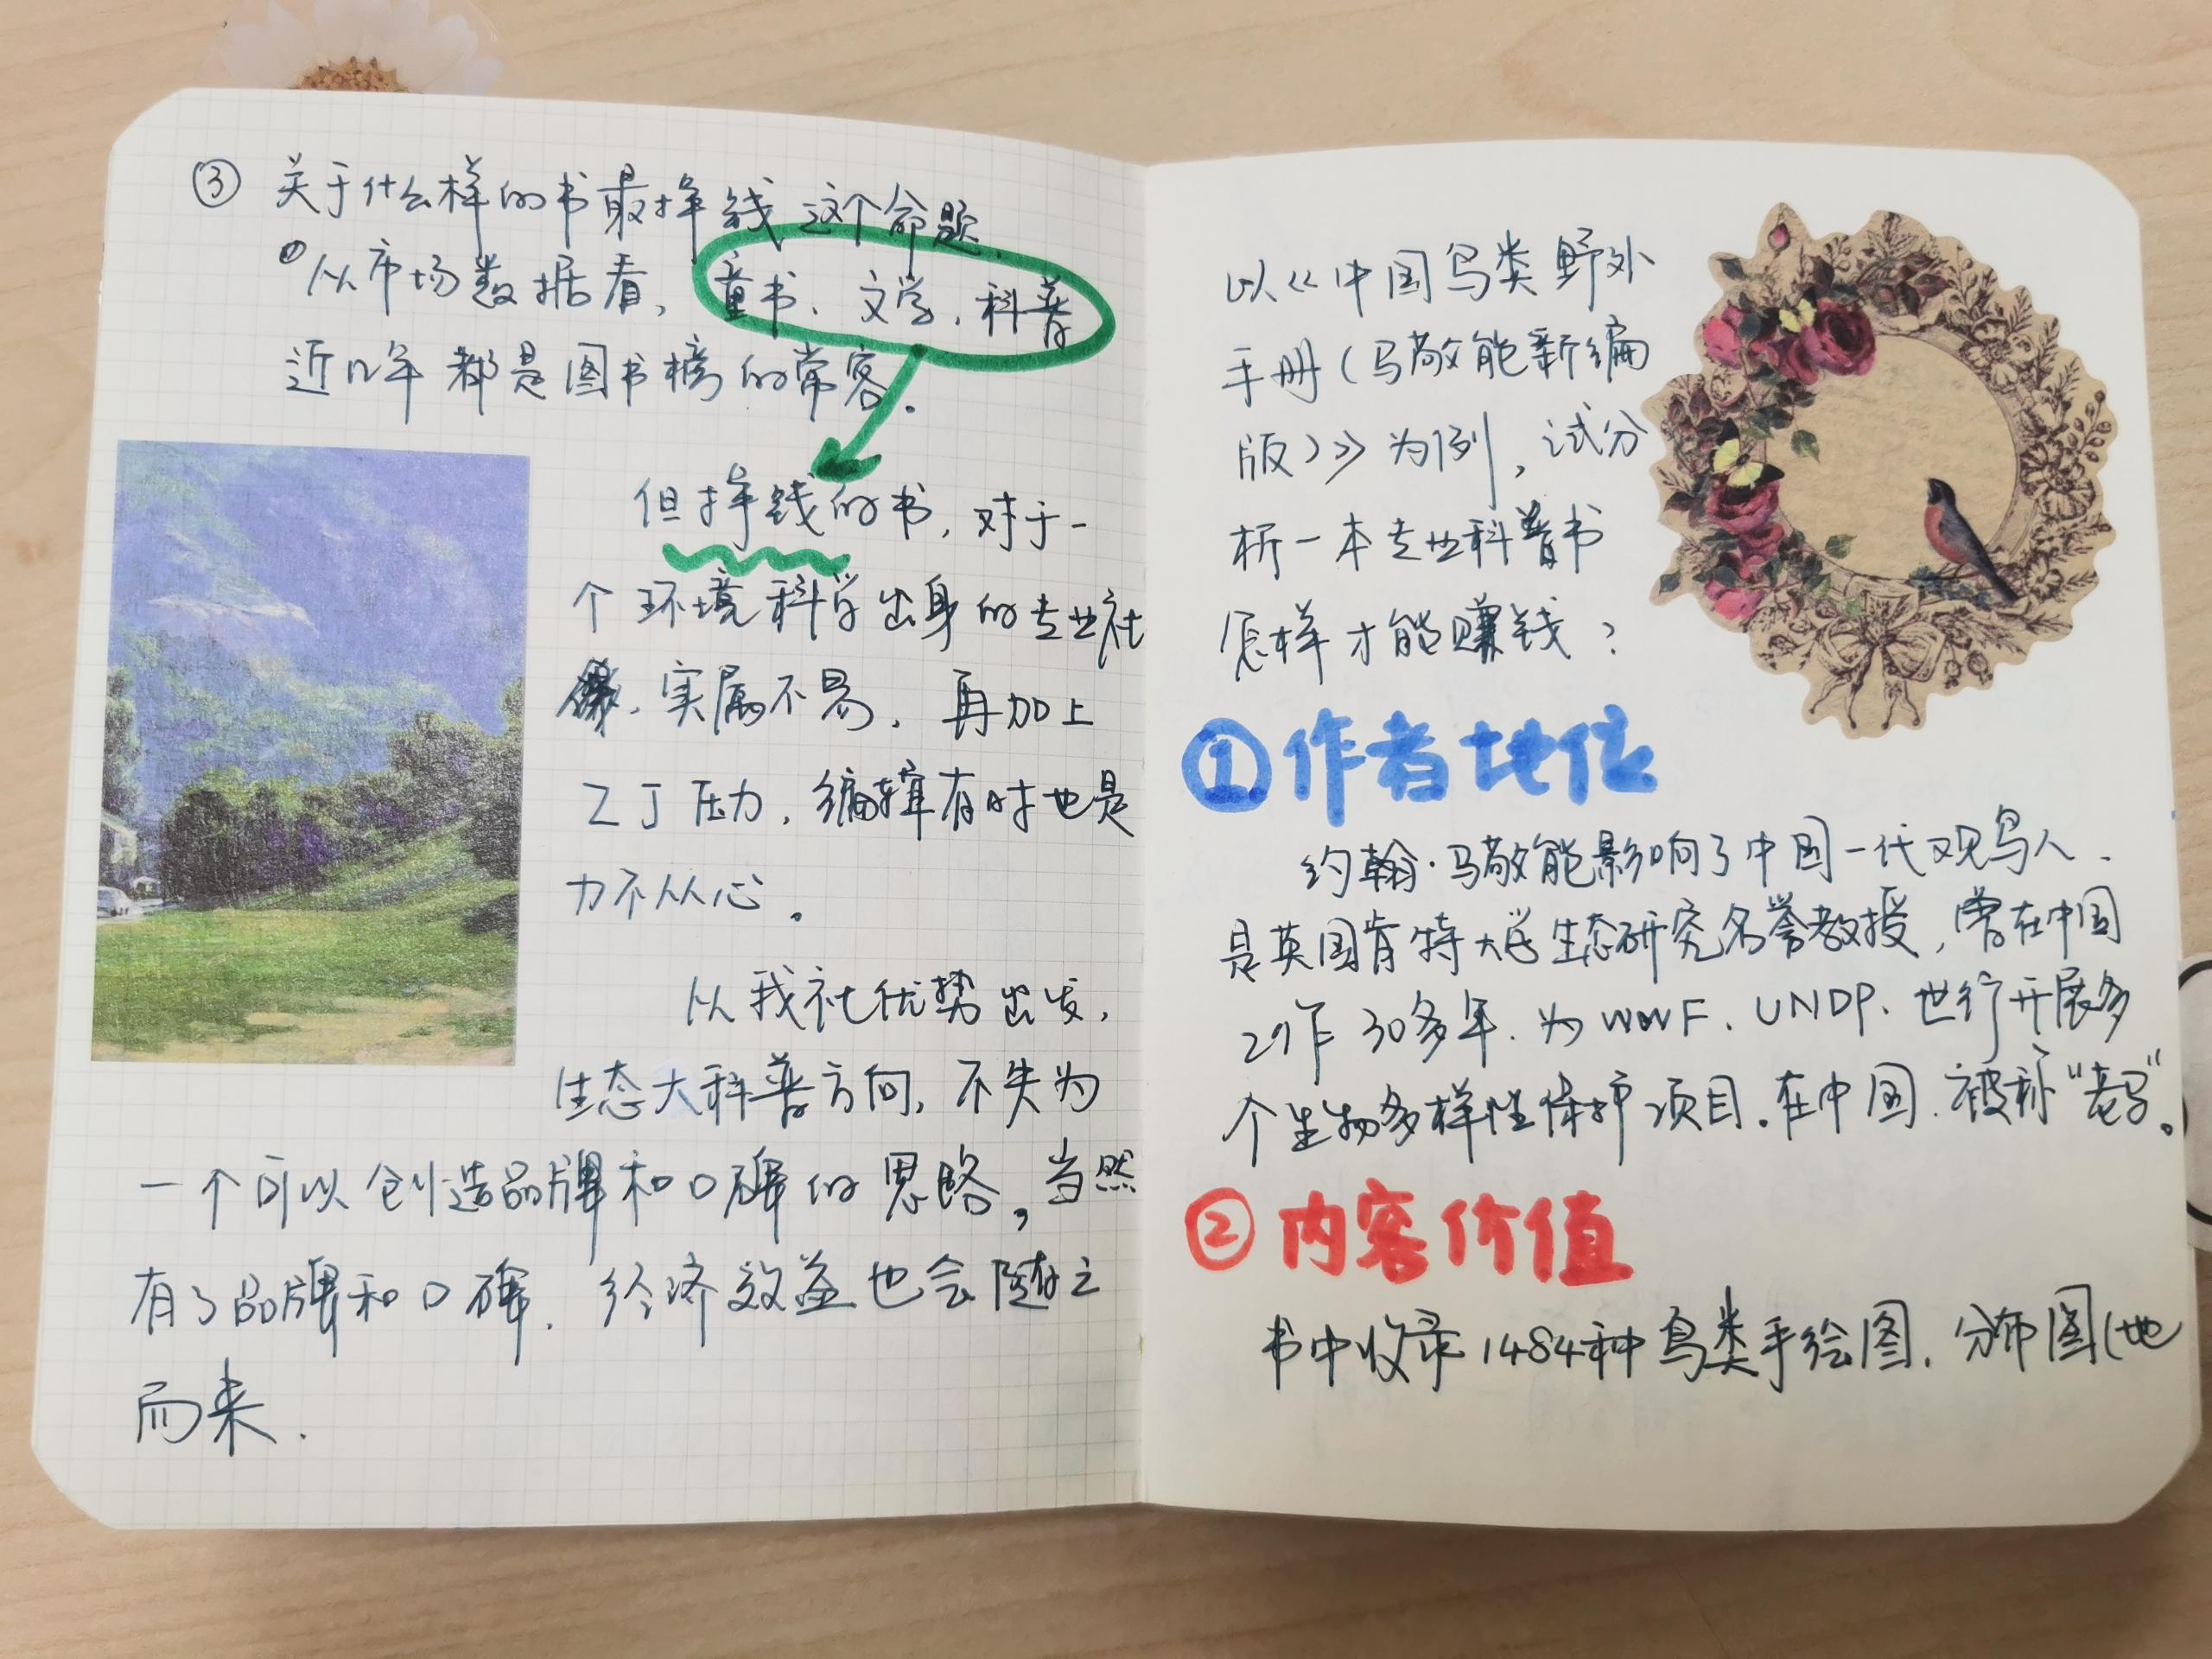 ③ 关于什么样的书最挣钱这个命题.
从市场数据看, 童书、文学、科普
近几年都是图书榜的常客。
但挣钱的书, 对于一
个环境科学出身的专业社
实属不易. 再加上
ZJ压力, 编辑有时也是
力不从心。
从我社优势出发,
生态大科普方向, 不失为
一个可以创造品牌和口碑的思路, 当然
有了品牌和口碑, 经济效益也会随之
而来.
以《中国鸟类野外
手册(马敬能新编
版)》为例, 试分
析一本专业科普书
怎样才能赚钱?
①作者地位
约翰·马敬能影响了中国一代观鸟人、
是英国肯特大学生态研究名誉教授, 曾在中国
工作30多年. 为WWF、UNDP、世行开展多
个生物多样性保护项目。在中国, 被称“老马”。
②内容价值
书中收录1484种鸟类手绘图, 分布图(地